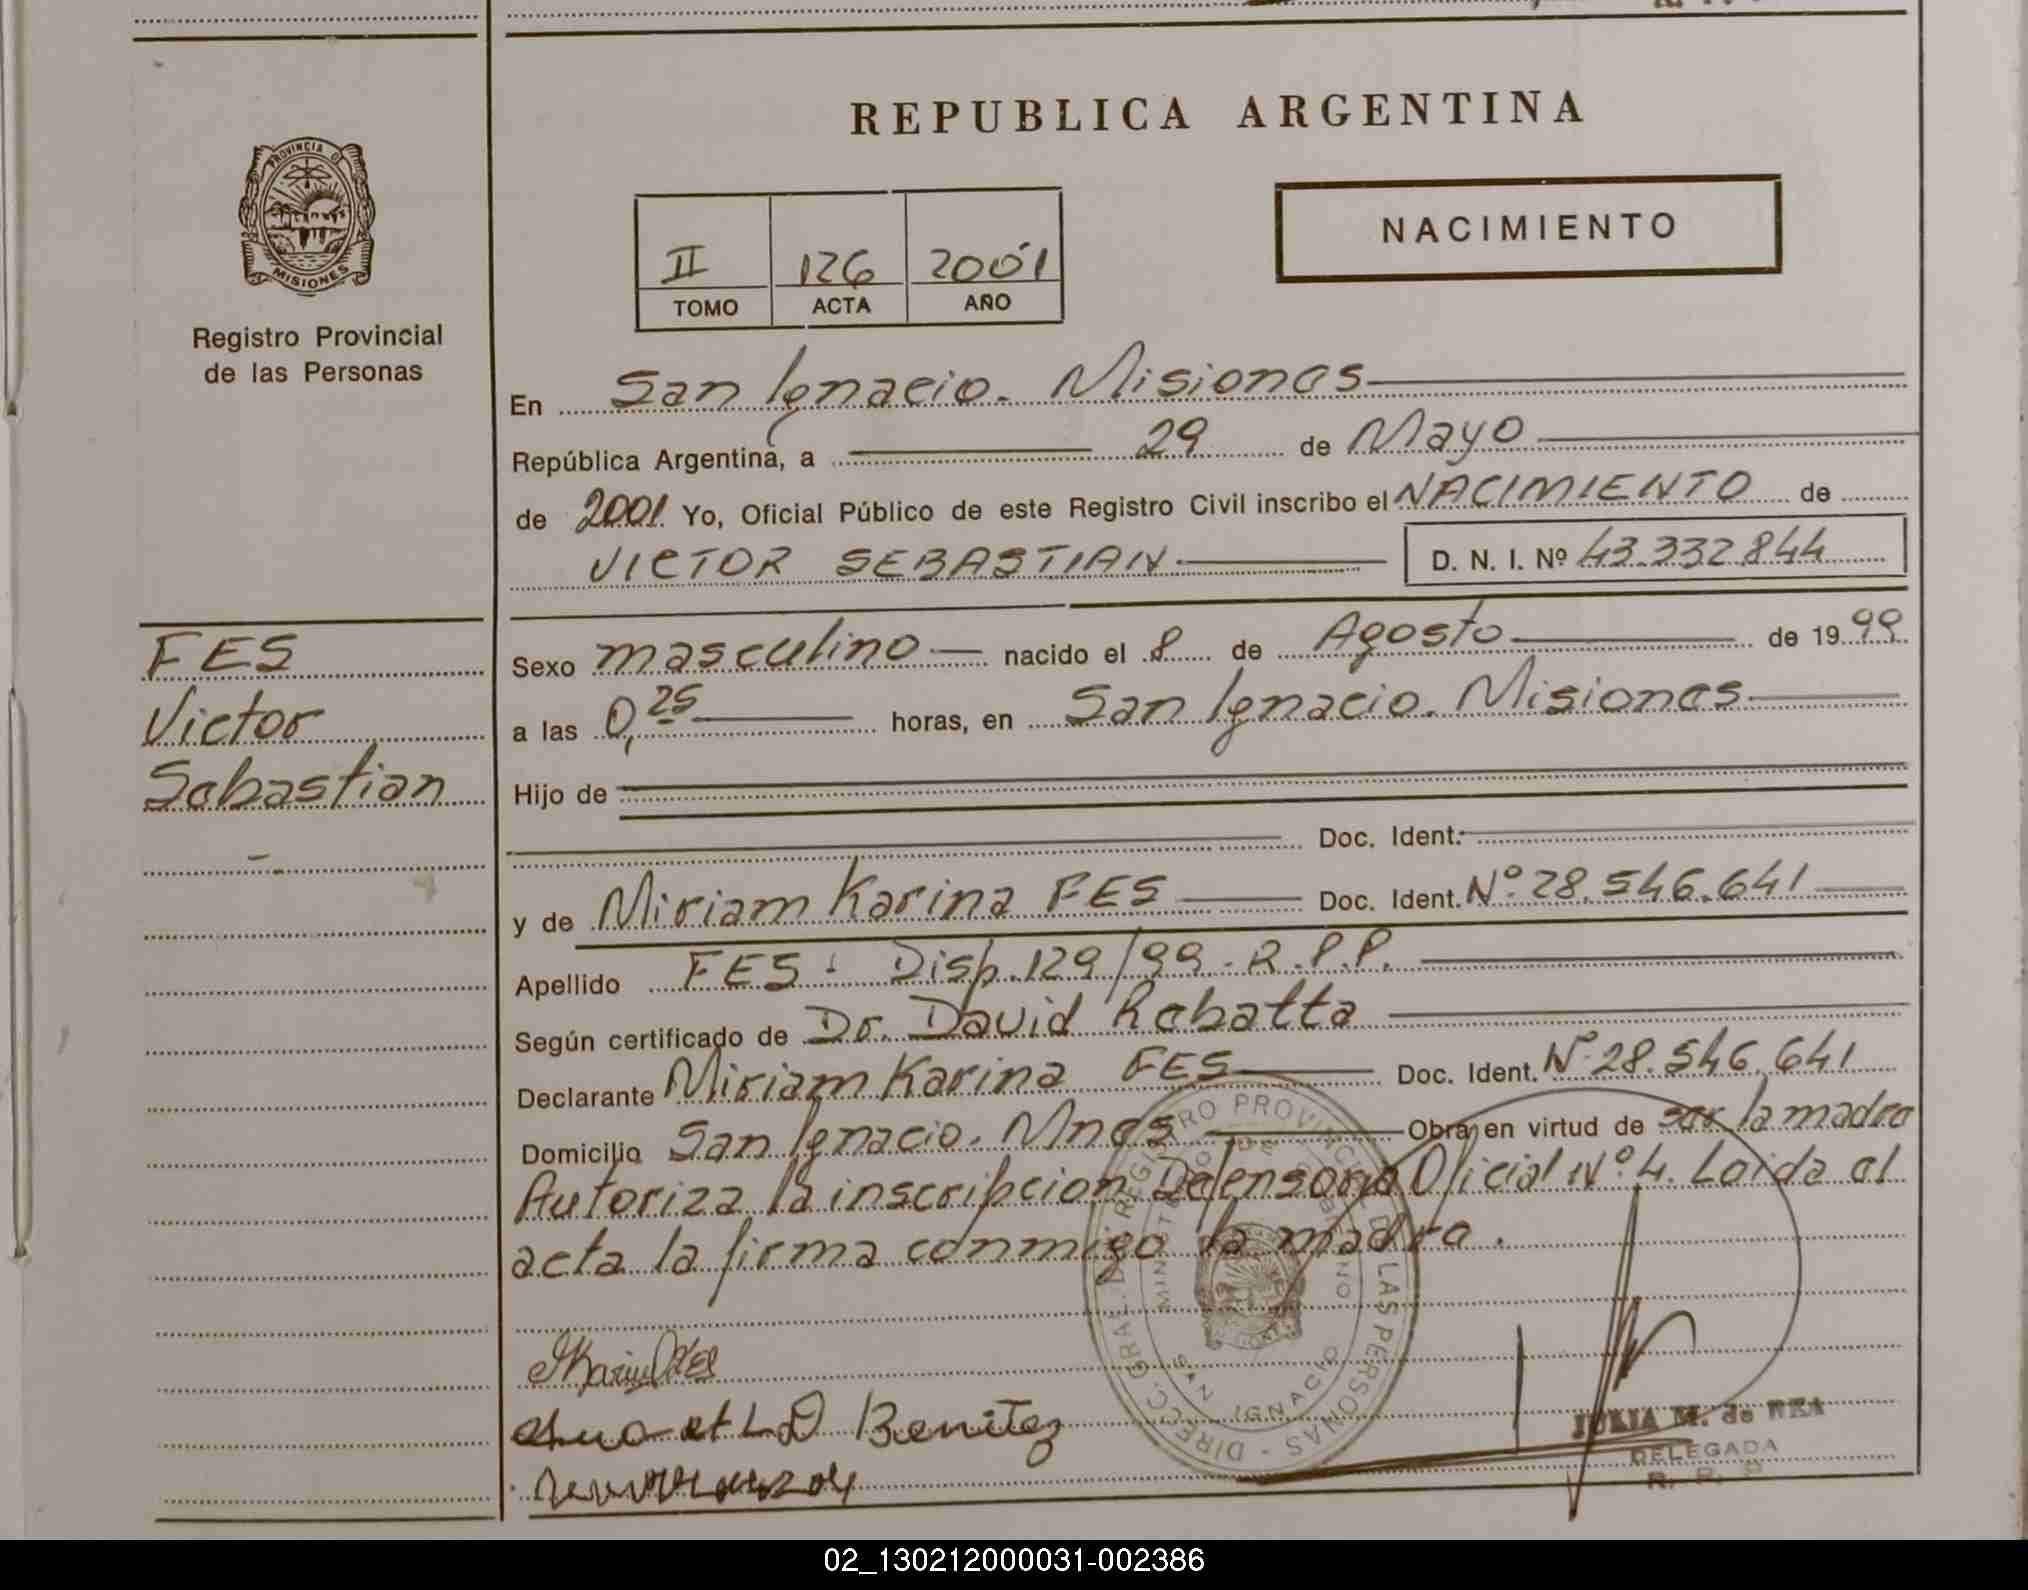 REPUBLICA ARGENTINA
PROVINCIA DE
MISIONES
Registro Provincial
de las Personas
II 126 2001
TOMO ACTA AÑO
NACIMIENTO
En San Ignacio. Misiones
República Argentina, a 29 de Mayo
de 2001 Yo, Oficial Público de este Registro Civil inscribo el NACIMIENTO de
VICTOR SEBASTIAN D. N. I. Nº 43.332.844
FES
Victor
Sebastian
Sexo masculino nacido el 8 de Agosto de 1999
a las 0,25 horas, en San Ignacio. Misiones
Hijo de
Doc. Ident.
y de Miriam Karina FES Doc. Ident. Nº 28.546.641
Apellido FES - Disp. 129/99 - R.P.P.
Según certificado de Dr. David Rebatta
Declarante Miriam Karina FES Doc. Ident. Nº 28.546.641
Domicilio San Ignacio. Mnes Obra en virtud de ser la madre
Autoriza la inscripcion Defensoria Oficial Nº 4. Leida el
acta la firma conmigo la madre.
DIRECC. GRAL. DE REGISTRO PROVINCIAL DE LAS PERSONAS
MINISTERIO DE GOBIERNO
SAN IGNACIO
Benitez
JULIA M. de REA
DELEGADA
R. P. P.
02_130212000031-002386